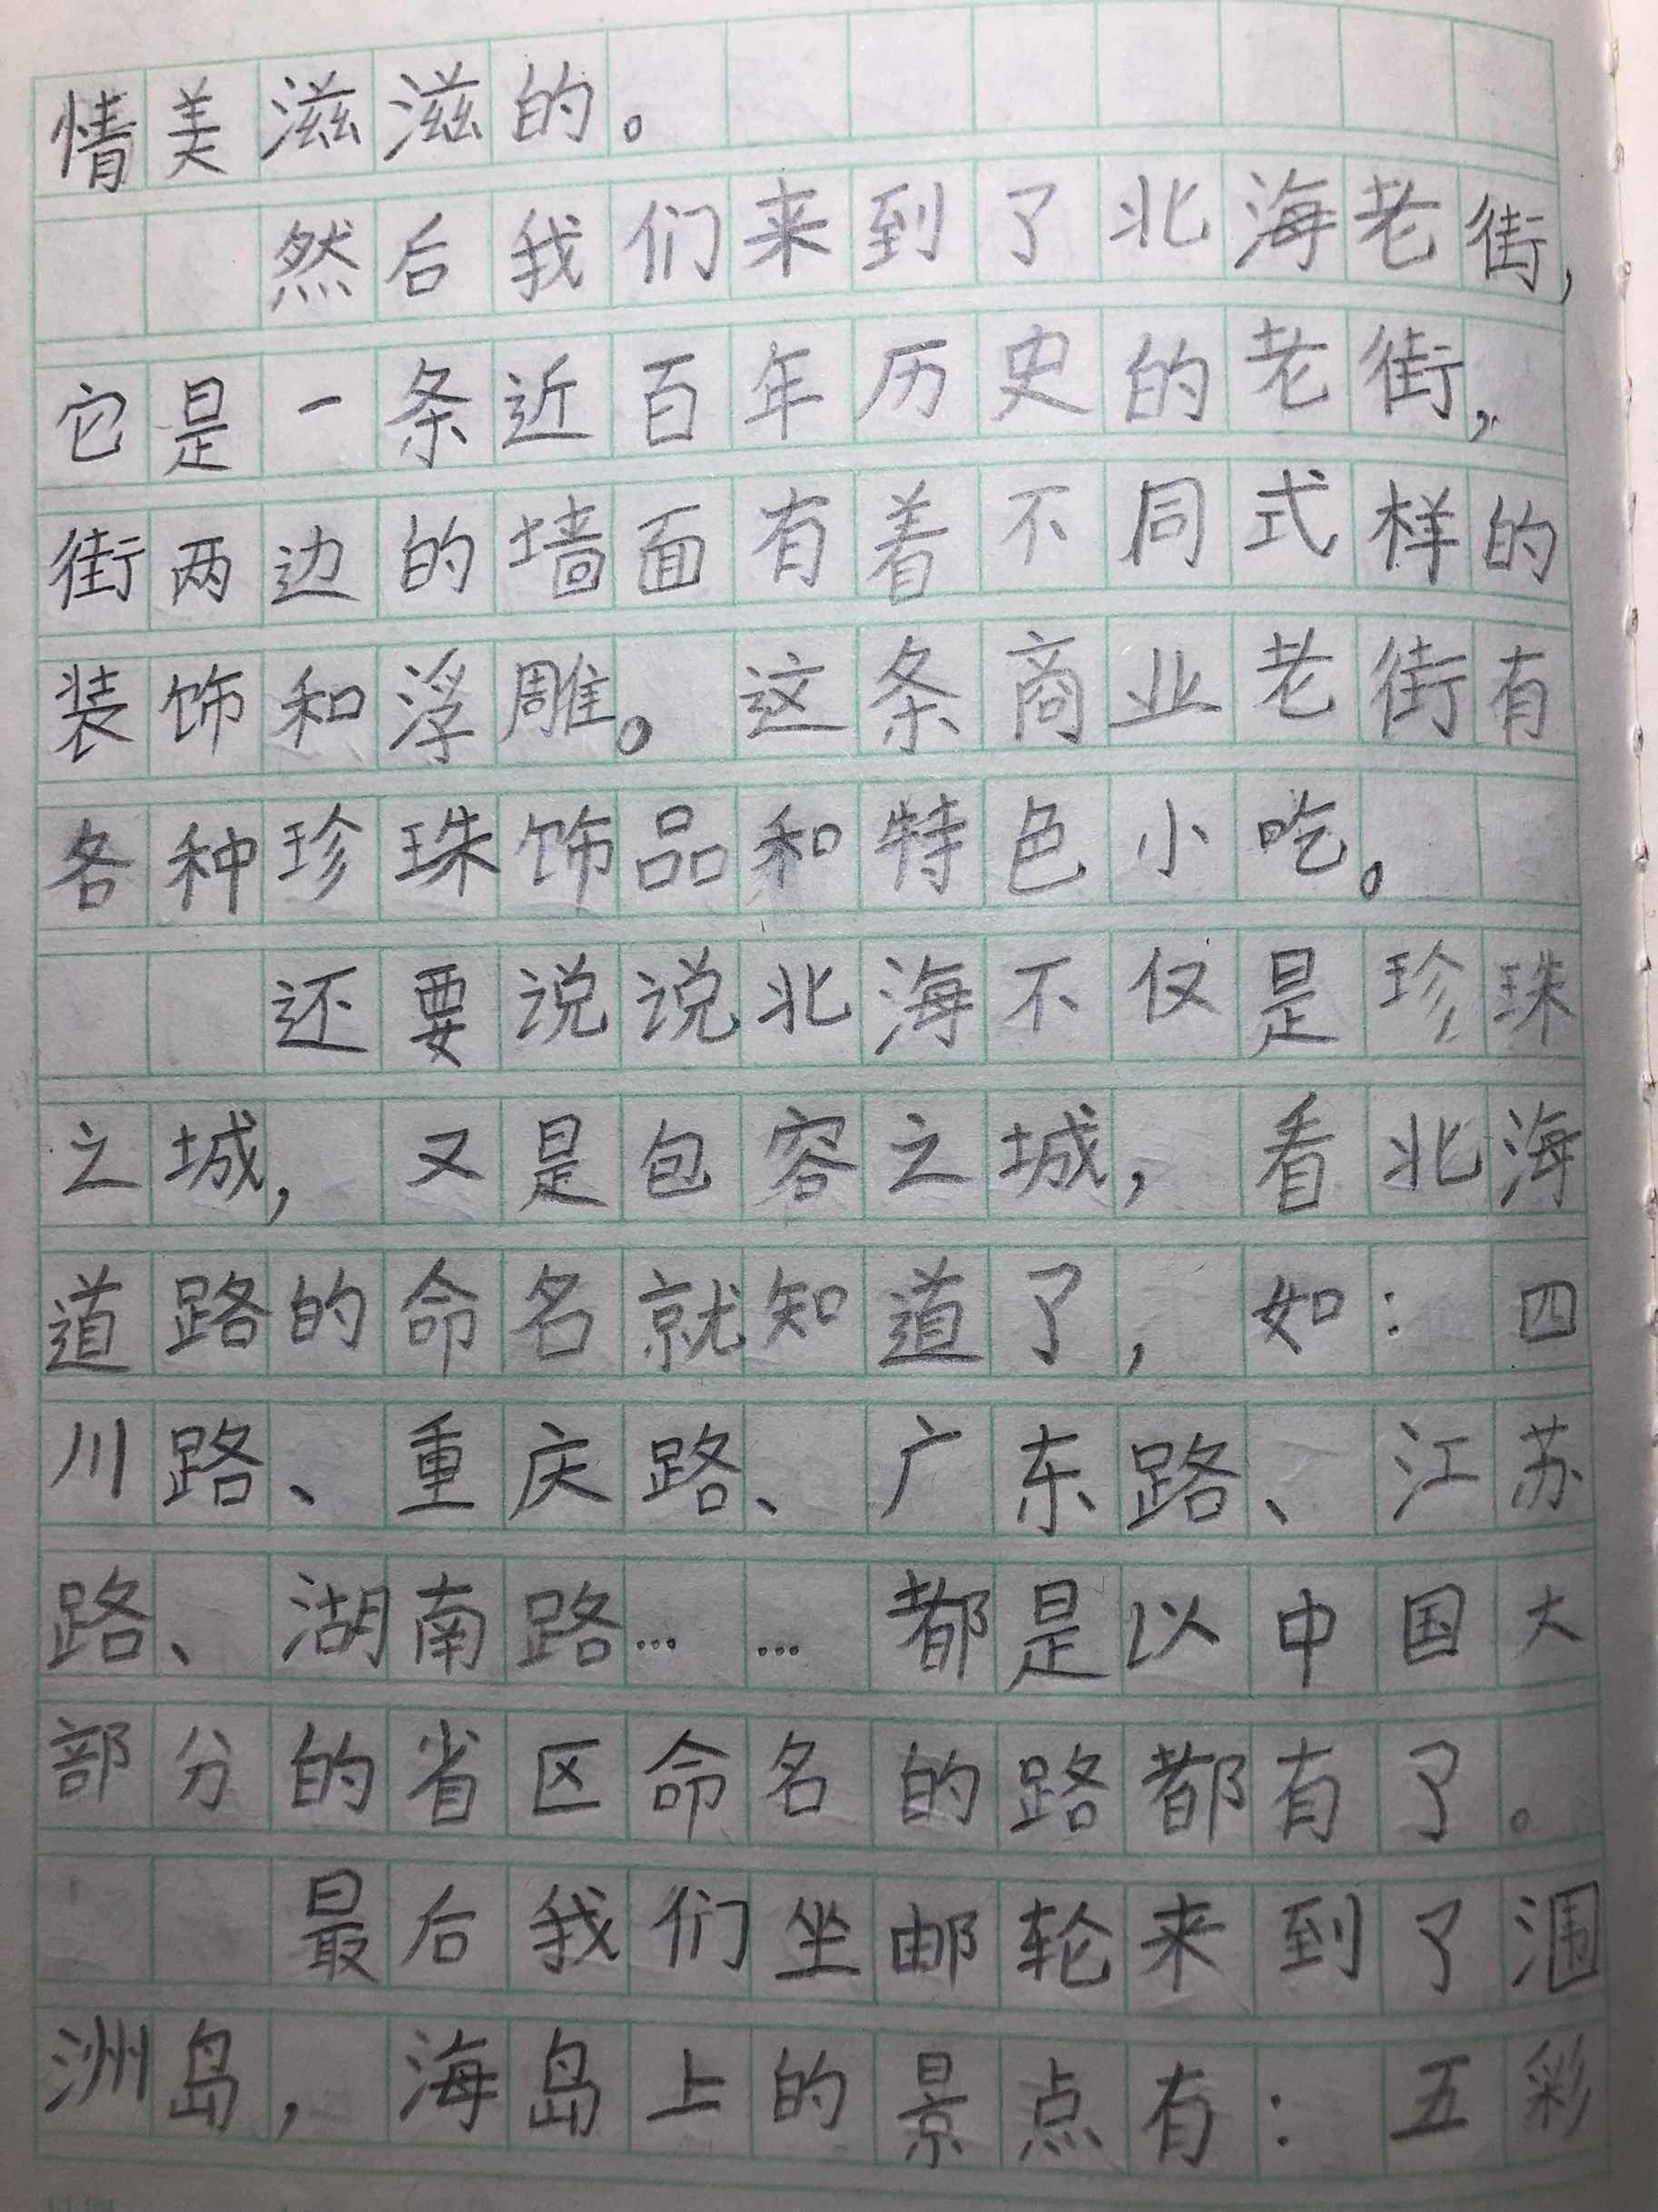 情美滋滋的。
然后我们来到了北海老街，
它是一条近百年历史的老街，
街两边的墙面有着不同式样的
装饰和浮雕。这条商业老街有
各种珍珠饰品和特色小吃。
还要说说北海不仅是珍珠
之城，又是包容之城，看北海
道路的命名就知道了，如：四
川路、重庆路、广东路、江苏
路、湖南路……都是以中国大
部分的省区命名的路都有了。
最后我们坐邮轮来到了涠
洲岛，海岛上的景点有：五彩